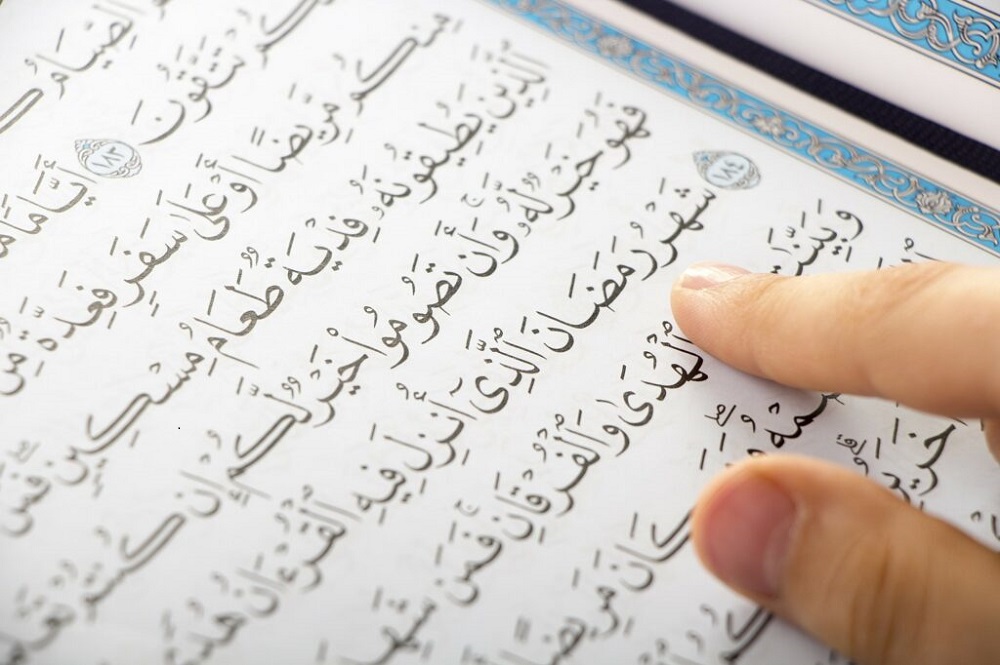 ٱلصِّيَامُ
تَتَّقُونَ ١٨٣ أَيَّامًا
مِنكُم مَّرِيضًا أَوْ عَلَىٰ سَفَرٍ فَعِدَّةٌ مِّنْ
ٱلَّذِينَ يُطِيقُونَهُۥ فِدْيَةٌ طَعَامُ مِسْكِينٍ فَمَن
فَهُوَ خَيْرٌ لَّهُۥ وَأَن تَصُومُوا۟ خَيْرٌ لَّكُمْ إِن كُنتُمْ
١٨٤ شَهْرُ رَمَضَانَ ٱلَّذِىٓ أُنزِلَ فِيهِ ٱلْقُرْءَانُ
ٱلْهُدَىٰ وَٱلْفُرْقَانِ فَمَن
كَانَ مَرِيضًا